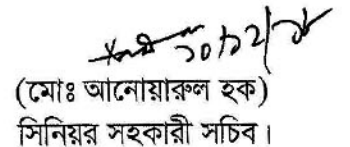 ১০/১২/১৮
(মোঃ আনোয়ারুল হক)
সিনিয়র সহকারী সচিব।